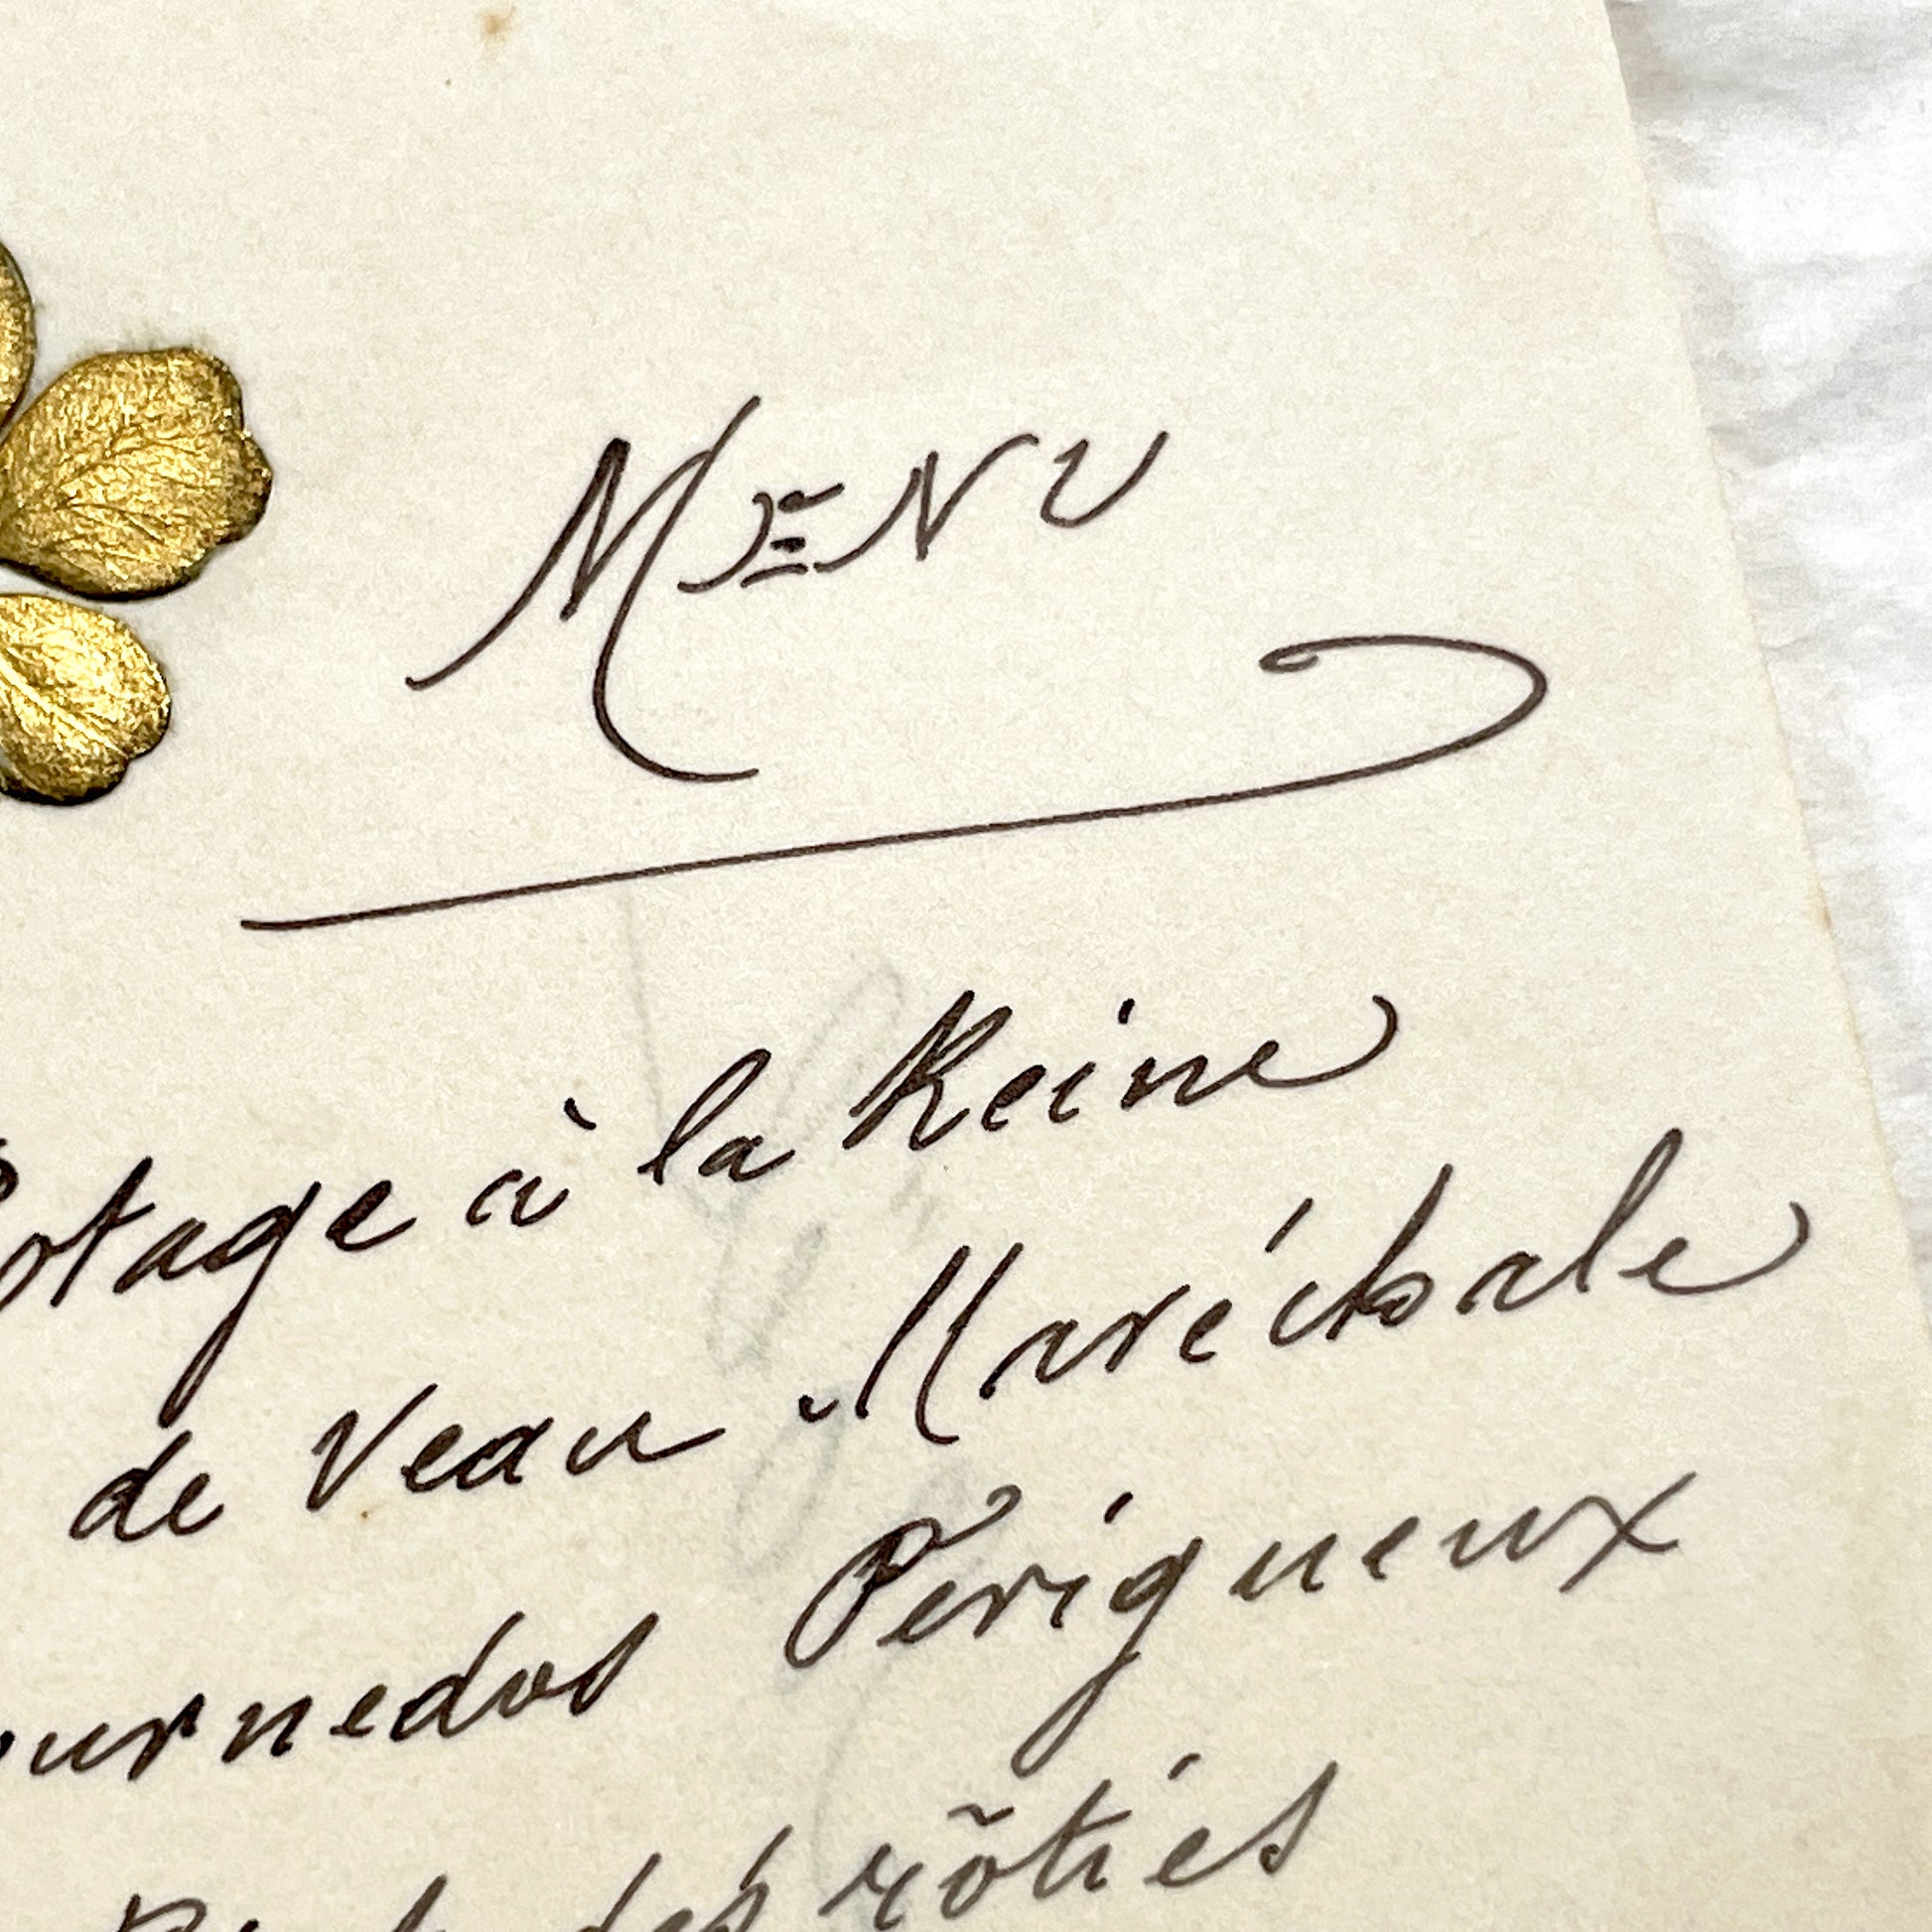 MENU
Potage à la Reine
de Veau Maréchale
ournedos Périgueux
rôties